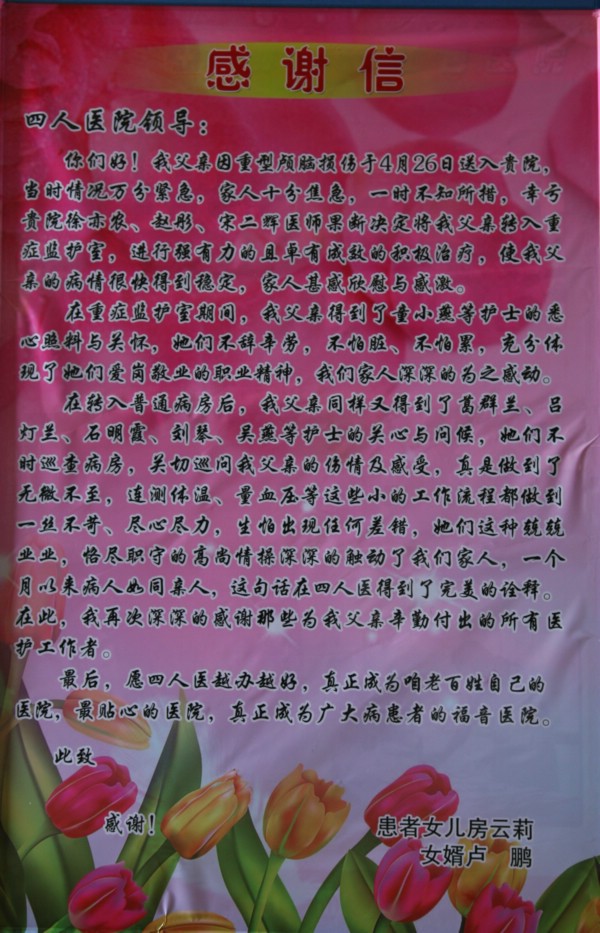 感谢信
四人医院领导：
你们好！我父亲因重型颅脑损伤于4月26日送入贵院，
当时情况万分紧急，家人十分焦急，一时不知所措，幸亏
贵院徐亦农、赵彤、宋二辉医师果断决定将我父亲转入重
症监护室，进行强有力的且卓有成效的积极治疗，使我父
亲的病情很快得到稳定，家人甚感欣慰与感激。
在重症监护室期间，我父亲得到了童小燕等护士的悉
心照料与关怀，她们不辞辛劳，不怕脏、不怕累，充分体
现了她们爱岗敬业的职业精神，我们家人深深的为之感动。
在转入普通病房后，我父亲同样又得到了葛群兰、吕
灯兰、石明霞、刘琴、吴燕等护士的关心与问候，她们不
时巡查病房，关切巡问我父亲的伤情及感受，真是做到了
无微不至，连测体温、量血压等这些小的工作流程都做到
一丝不苛、尽心尽力，生怕出现任何差错，她们这种兢兢
业业，恪尽职守的高尚情操深深的触动了我们家人，一个
月以来病人如同亲人，这句话在四人医得到了完美的诠释。
在此，我再次深深的感谢那些为我父亲辛勤付出的所有医
护工作者。
最后，愿四人医越办越好，真正成为咱老百姓自己的
医院，最贴心的医院，真正成为广大病患者的福音医院。
此致
感谢！
患者女儿房云莉
女婿卢 鹏